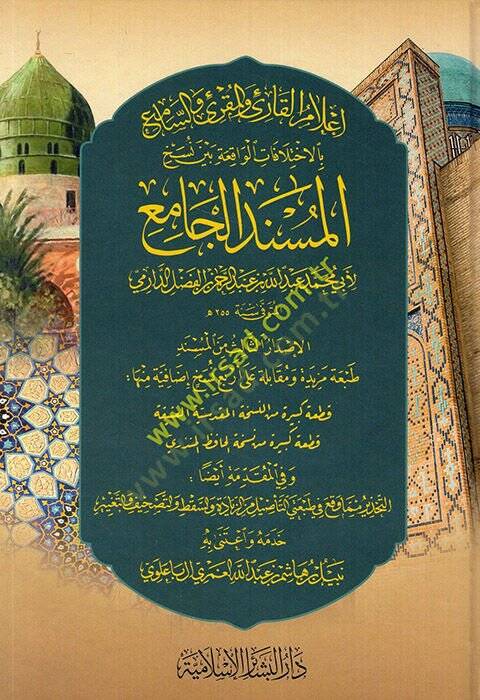 إعلام القارئ والمقرئ والسامع
بالاختلافات الواقعة بين نسخ
المسند الجامع
لأبي محمد عبد الله بن عبد الرحمن بن الفضل الدارمي
المتوفى سنة ٢٥٥ هـ
الإصدار الثالث من المسند
طبعة مزيدة ومقابلة على أربع نسخ إضافية منها :
قطعة كبيرة من النسخة المقدسية المتقنة
قطعة كبيرة من نسخة الحافظ المنذري
وفي المقدمة أيضًا :
التحذير مما وقع في طبعتي التأصيل من الزيادة والسقط والتصحيف والتغيير
خدمه واعتنى به
نبيل بن هاشم بن عبد الله الغمري آل باعلوي
دار البشائر الإسلامية
www.irsad.com.tr